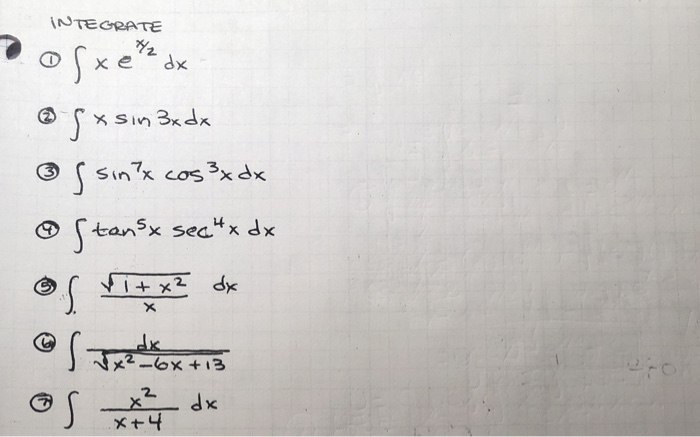 INTEGRATE
① ∫ x e^{x/2} dx
② ∫ x sin 3x dx
③ ∫ sin⁷x cos³x dx
④ ∫ tan⁵x sec⁴x dx
⑤ ∫ √(1 + x²) / x dx
⑥ ∫ dx / √(x² - 6x + 13)
⑦ ∫ x² / (x + 4) dx